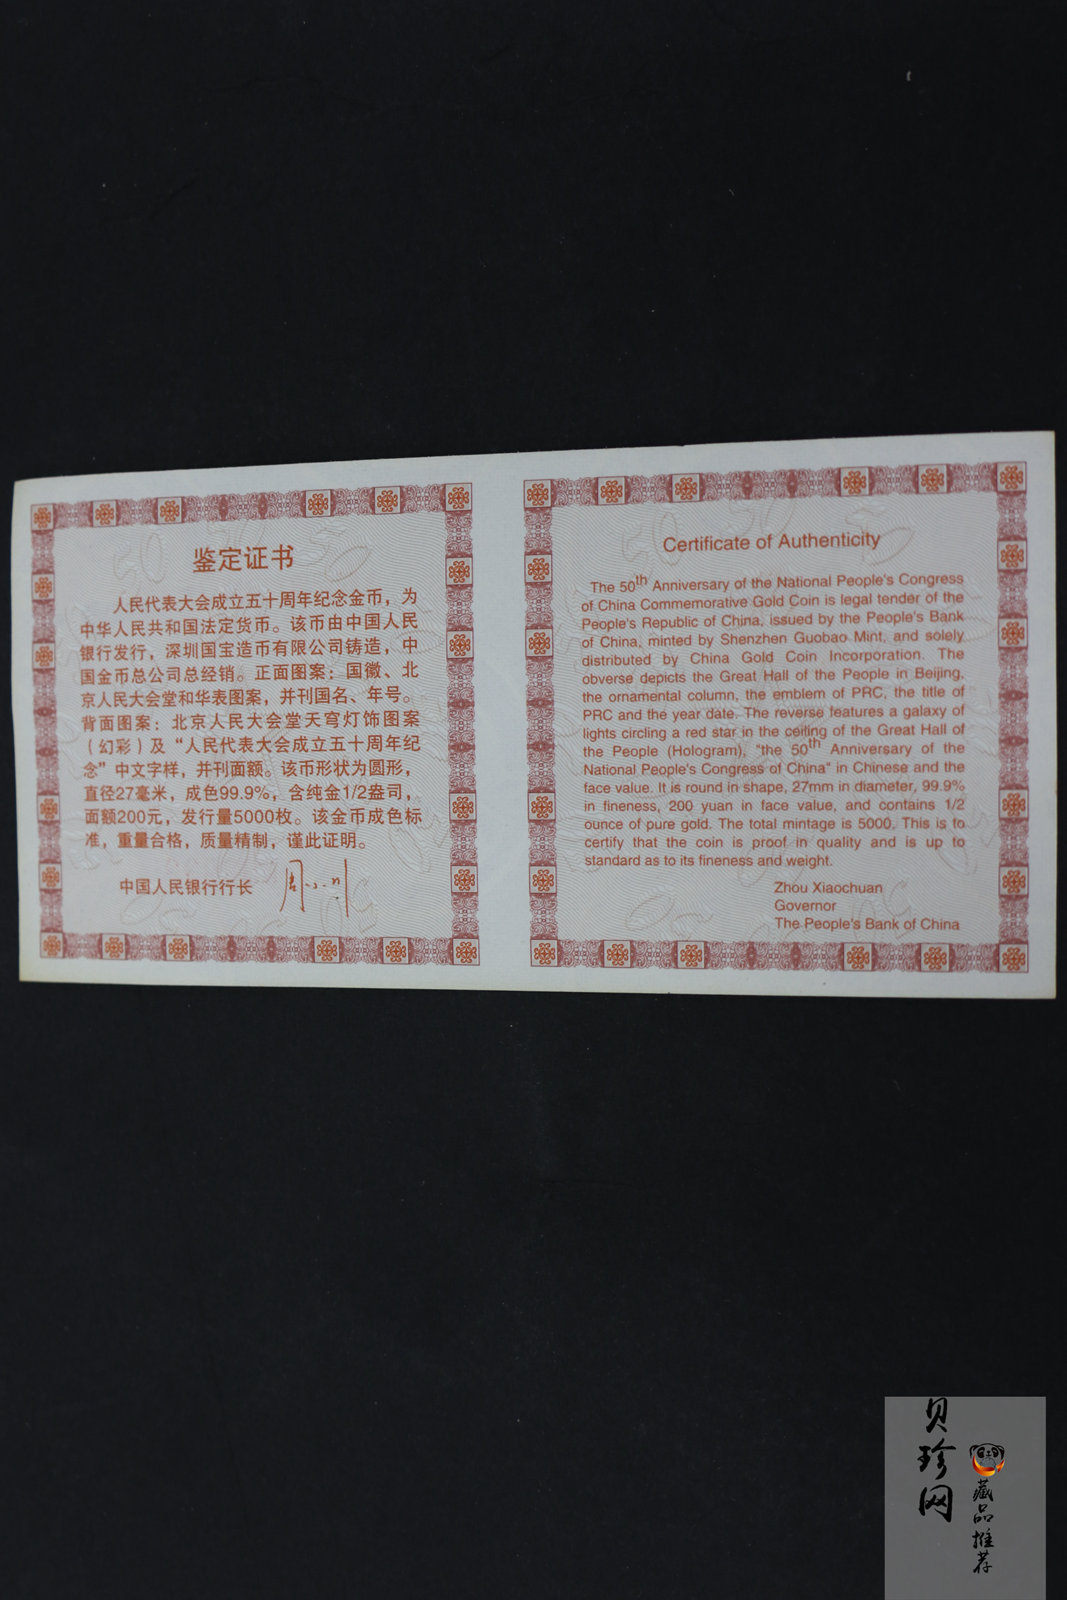 鉴定证书
人民代表大会成立五十周年纪念金币，为
中华人民共和国法定货币。该币由中国人民
银行发行，深圳国宝造币有限公司铸造，中
国金币总公司总经销。正面图案：国徽、北
京人民大会堂和华表图案，并刊国名、年号。
背面图案：北京人民大会堂天穹灯饰图案
（幻彩）及“人民代表大会成立五十周年纪
念”中文字样，并刊面额。该币形状为圆形，
直径27毫米，成色99.9%，含纯金1/2盎司，
面额200元，发行量5000枚。该金币成色标
准，重量合格，质量精制，谨此证明。
中国人民银行行长 周小川
Certificate of Authenticity
The 50th Anniversary of the National People's Congress
of China Commemorative Gold Coin is legal tender of the
People's Republic of China, issued by the People's Bank
of China, minted by Shenzhen Guobao Mint, and solely
distributed by China Gold Coin Incorporation. The
obverse depicts the Great Hall of the People in Beijing,
the ornamental column, the emblem of PRC, the title of
PRC and the year date. The reverse features a galaxy of
lights circling a red star in the ceiling of the Great Hall of
the People (Hologram), "the 50th Anniversary of the
National People's Congress of China" in Chinese and the
face value. It is round in shape, 27mm in diameter, 99.9%
in fineness, 200 yuan in face value, and contains 1/2
ounce of pure gold. The total mintage is 5000. This is to
certify that the coin is proof in quality and is up to
standard as to its fineness and weight.
Zhou Xiaochuan
Governor
The People's Bank of China
贝珍网
藏品推荐